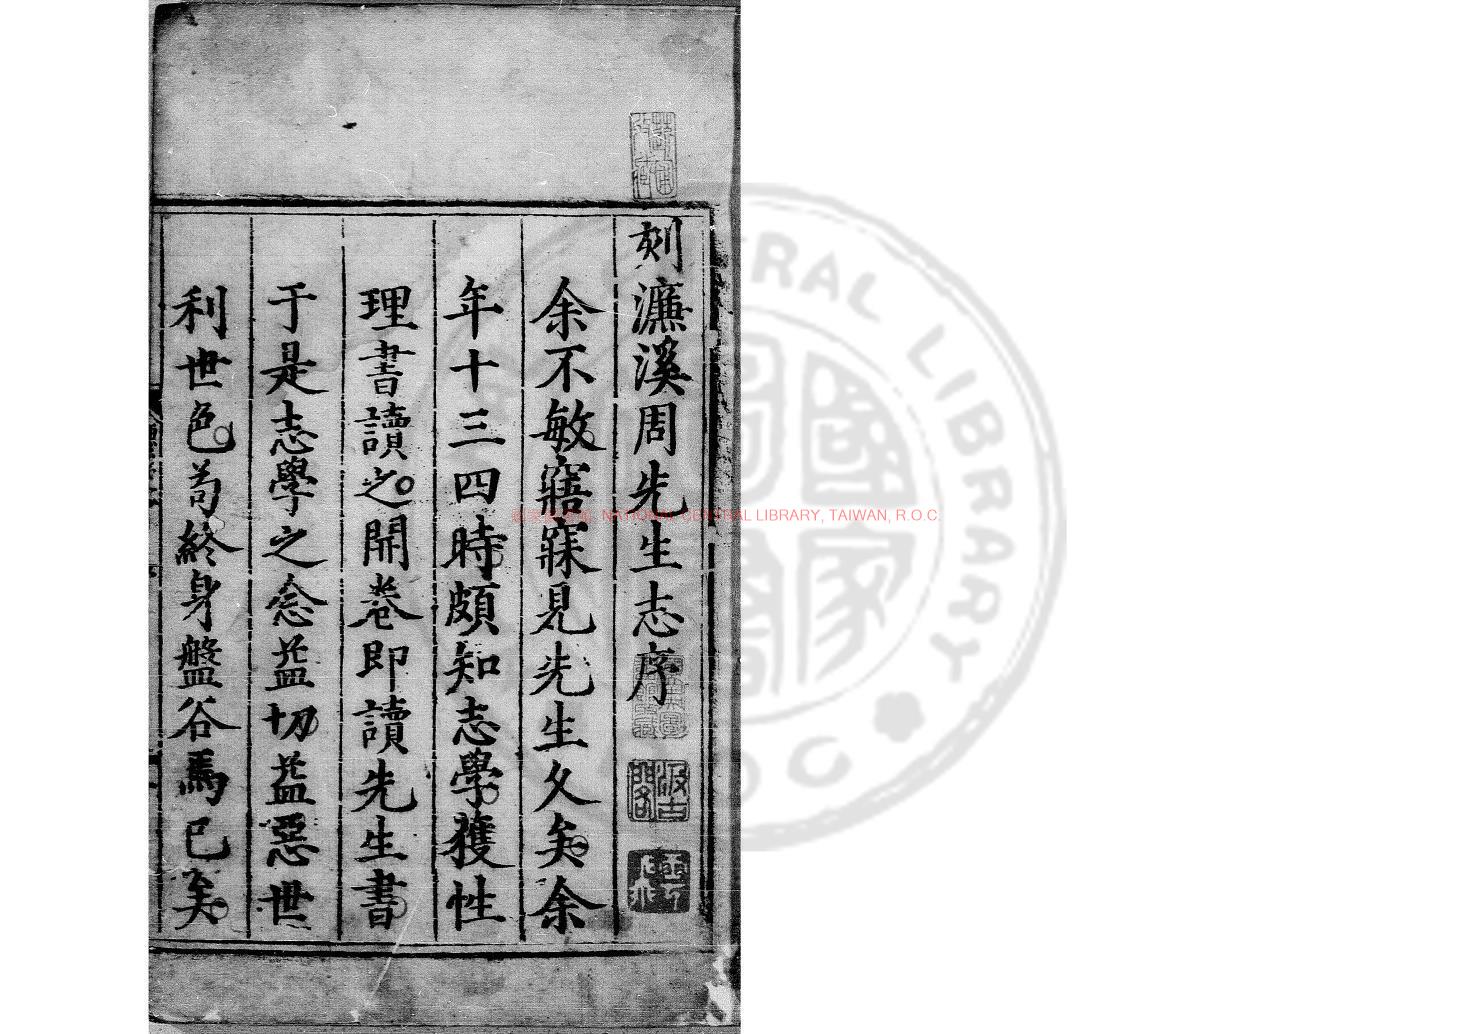 刻濂溪周先生志序
余不敏寤寐見先生久矣余
年十三四時頗知志學獲性
理書讀之開卷即讀先生書
于是志學之念益切益惡世
利世色苟終身盤谷焉已矣
汲古閣
NATIONAL CENTRAL LIBRARY, TAIWAN, R.O.C.